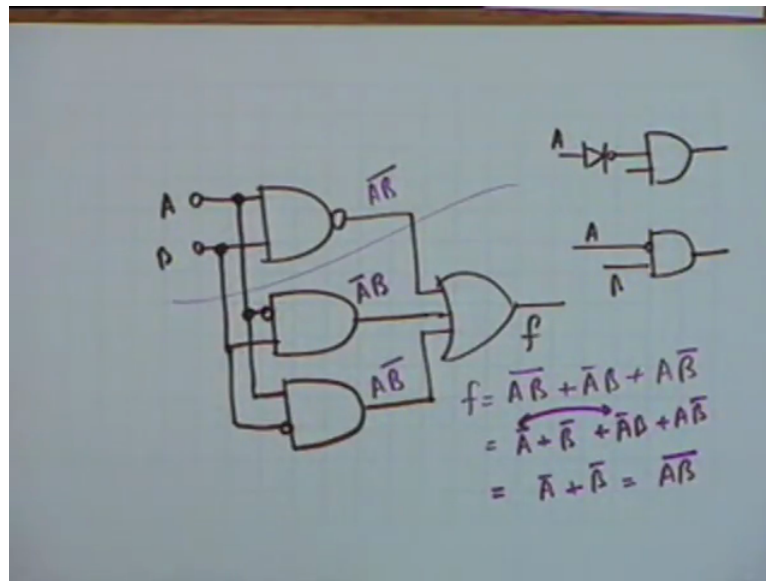 A
B
A̅B̅
A̅B
AB̅
f
A
A
f = A̅B̅ + A̅B + AB̅
= A̅ + B̅ + A̅B + AB̅
= A̅ + B̅ = A̅B̅